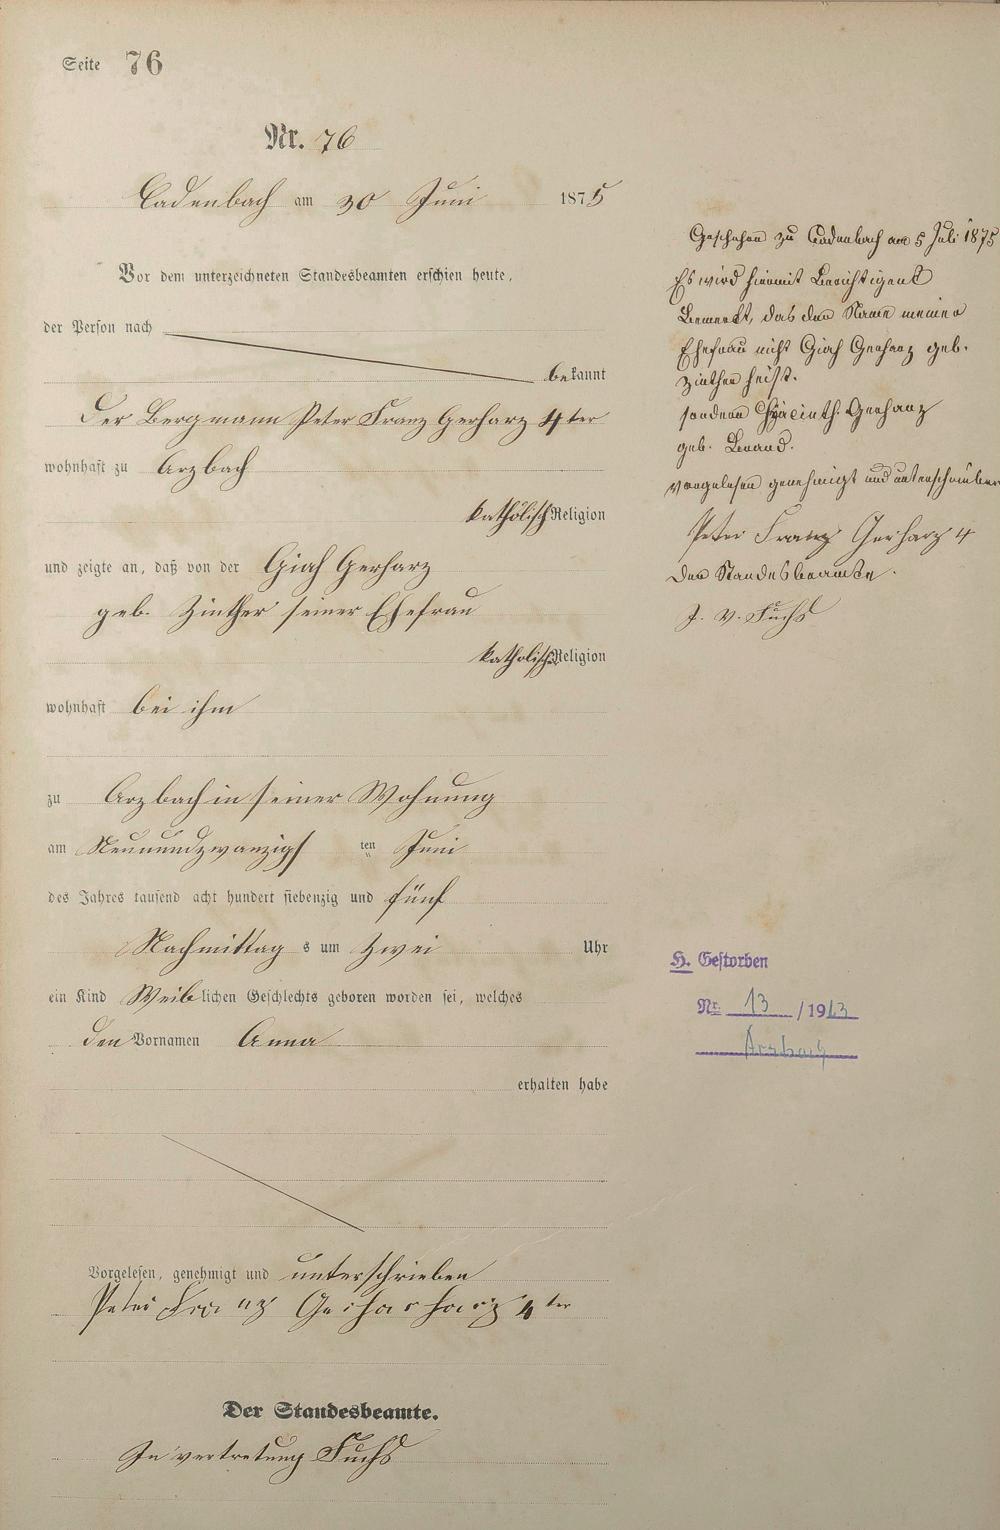 Seite 76
Nr. 76
Cadenbach am 30 Juni 1875
Vor dem unterzeichneten Standesbeamten erschien heute,
der Person nach
bekannt
Der Bergmann Peter Franz Gerharz 4ter
wohnhaft zu Arzbach
katholisch Religion
und zeigte an, daß von der Giah Gerharz
geb. Zinther seiner Ehefrau
katholische Religion
wohnhaft bei ihm
zu Arzbach in seiner Wohnung
am Neunundzwanzigs ten Juni
des Jahres tausend acht hundert siebenzig und fünf
Nachmittag s um Zwei Uhr
ein Kind Weiblichen Geschlechts geboren worden sei, welches
den Vornamen Anna
erhalten habe
Vorgelesen, genehmigt und unterschrieben
Peter Franz Gerharharz 4ter
Der Standesbeamte.
In vertretung Fuchs
Geschehen zu Cadenbach am 5 Juli 1875
Es wird hiermit Berichtigent
Bemerkt, das der Name meiner
Ehefrau nicht Giah Gerharz geb.
Zinther heist.
sondern Hyacinth. Gerharz
geb.
vorgelesen genehmigt und unterschrieben
Peter Franz Gerharz 4
Der Standesbeamte.
J. V. Fuchs
H. Gestorben
Nr. 13 / 1913
Arzbach